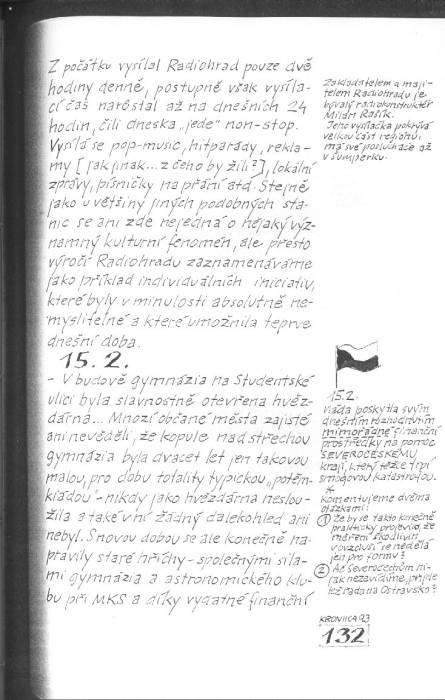 Z počátku vysílal Radiohrad pouze dvě
hodiny denně, postupně však vysíla-
cí čas narůstal až na dnešních 24
hodin, čili dneska „jede" non-stop.
Vysílá se pop-music, hitparády, rekla-
my [jak jinak... z čeho by žili?], lokální
zprávy, písničky na přání atd. Stejně
jako u většiny jiných podobných sta-
nic se ani zde nejedná o nějaký výz-
namný kulturní fenomén, ale přesto
výročí Radiohradu zaznamenáváme
jako příklad individuálních iniciativ,
které byly v minulosti absolutně ne-
myslitelné a které umožnila teprve
dnešní doba.
15. 2.
- V budově gymnázia na Studentské
ulici byla slavnostně otevřena hvěz-
dárna... Mnozí občané města zajisté
ani nevěděli, že kopule nad střechou
gymnázia byla dvacet let jen takovou
malou, pro dobu totality typickou „potěm-
kiádou" - nikdy jako hvězdárna neslou-
žila a také v ní žádný dalekohled ani
nebyl. S novou dobou se ale konečně na-
pravily staré hříchy - společnými sila-
mi gymnázia a astronomického klu-
bu při MKS a díky vydatné finanční
Zakladatelem a maji-
telem Radiohradu je
bývalý radiokonstruktér
Milan Rašík.
Jeho vysílačka pokrývá
velkou část regionu,
má své posluchače až
v Šumperku.
15.2.
Vláda poskytla svým
dnešním rozhodnutím
mimořádné finanční
prostředky na pomoc
SEVEROČESKÉMU
kraji, který těžce trpí
smogovou katastrofou.
*
Komentujeme dvěma
otázkami:
① Že by se takto konečně
prakticky projevilo, že
měření škodlivin
v ovzduší se nedělá
jen pro formu?
② Ač Severočechům ni-
jak nezávidíme, přijde
též řada na Ostravsko?
KRONIKA 93
132